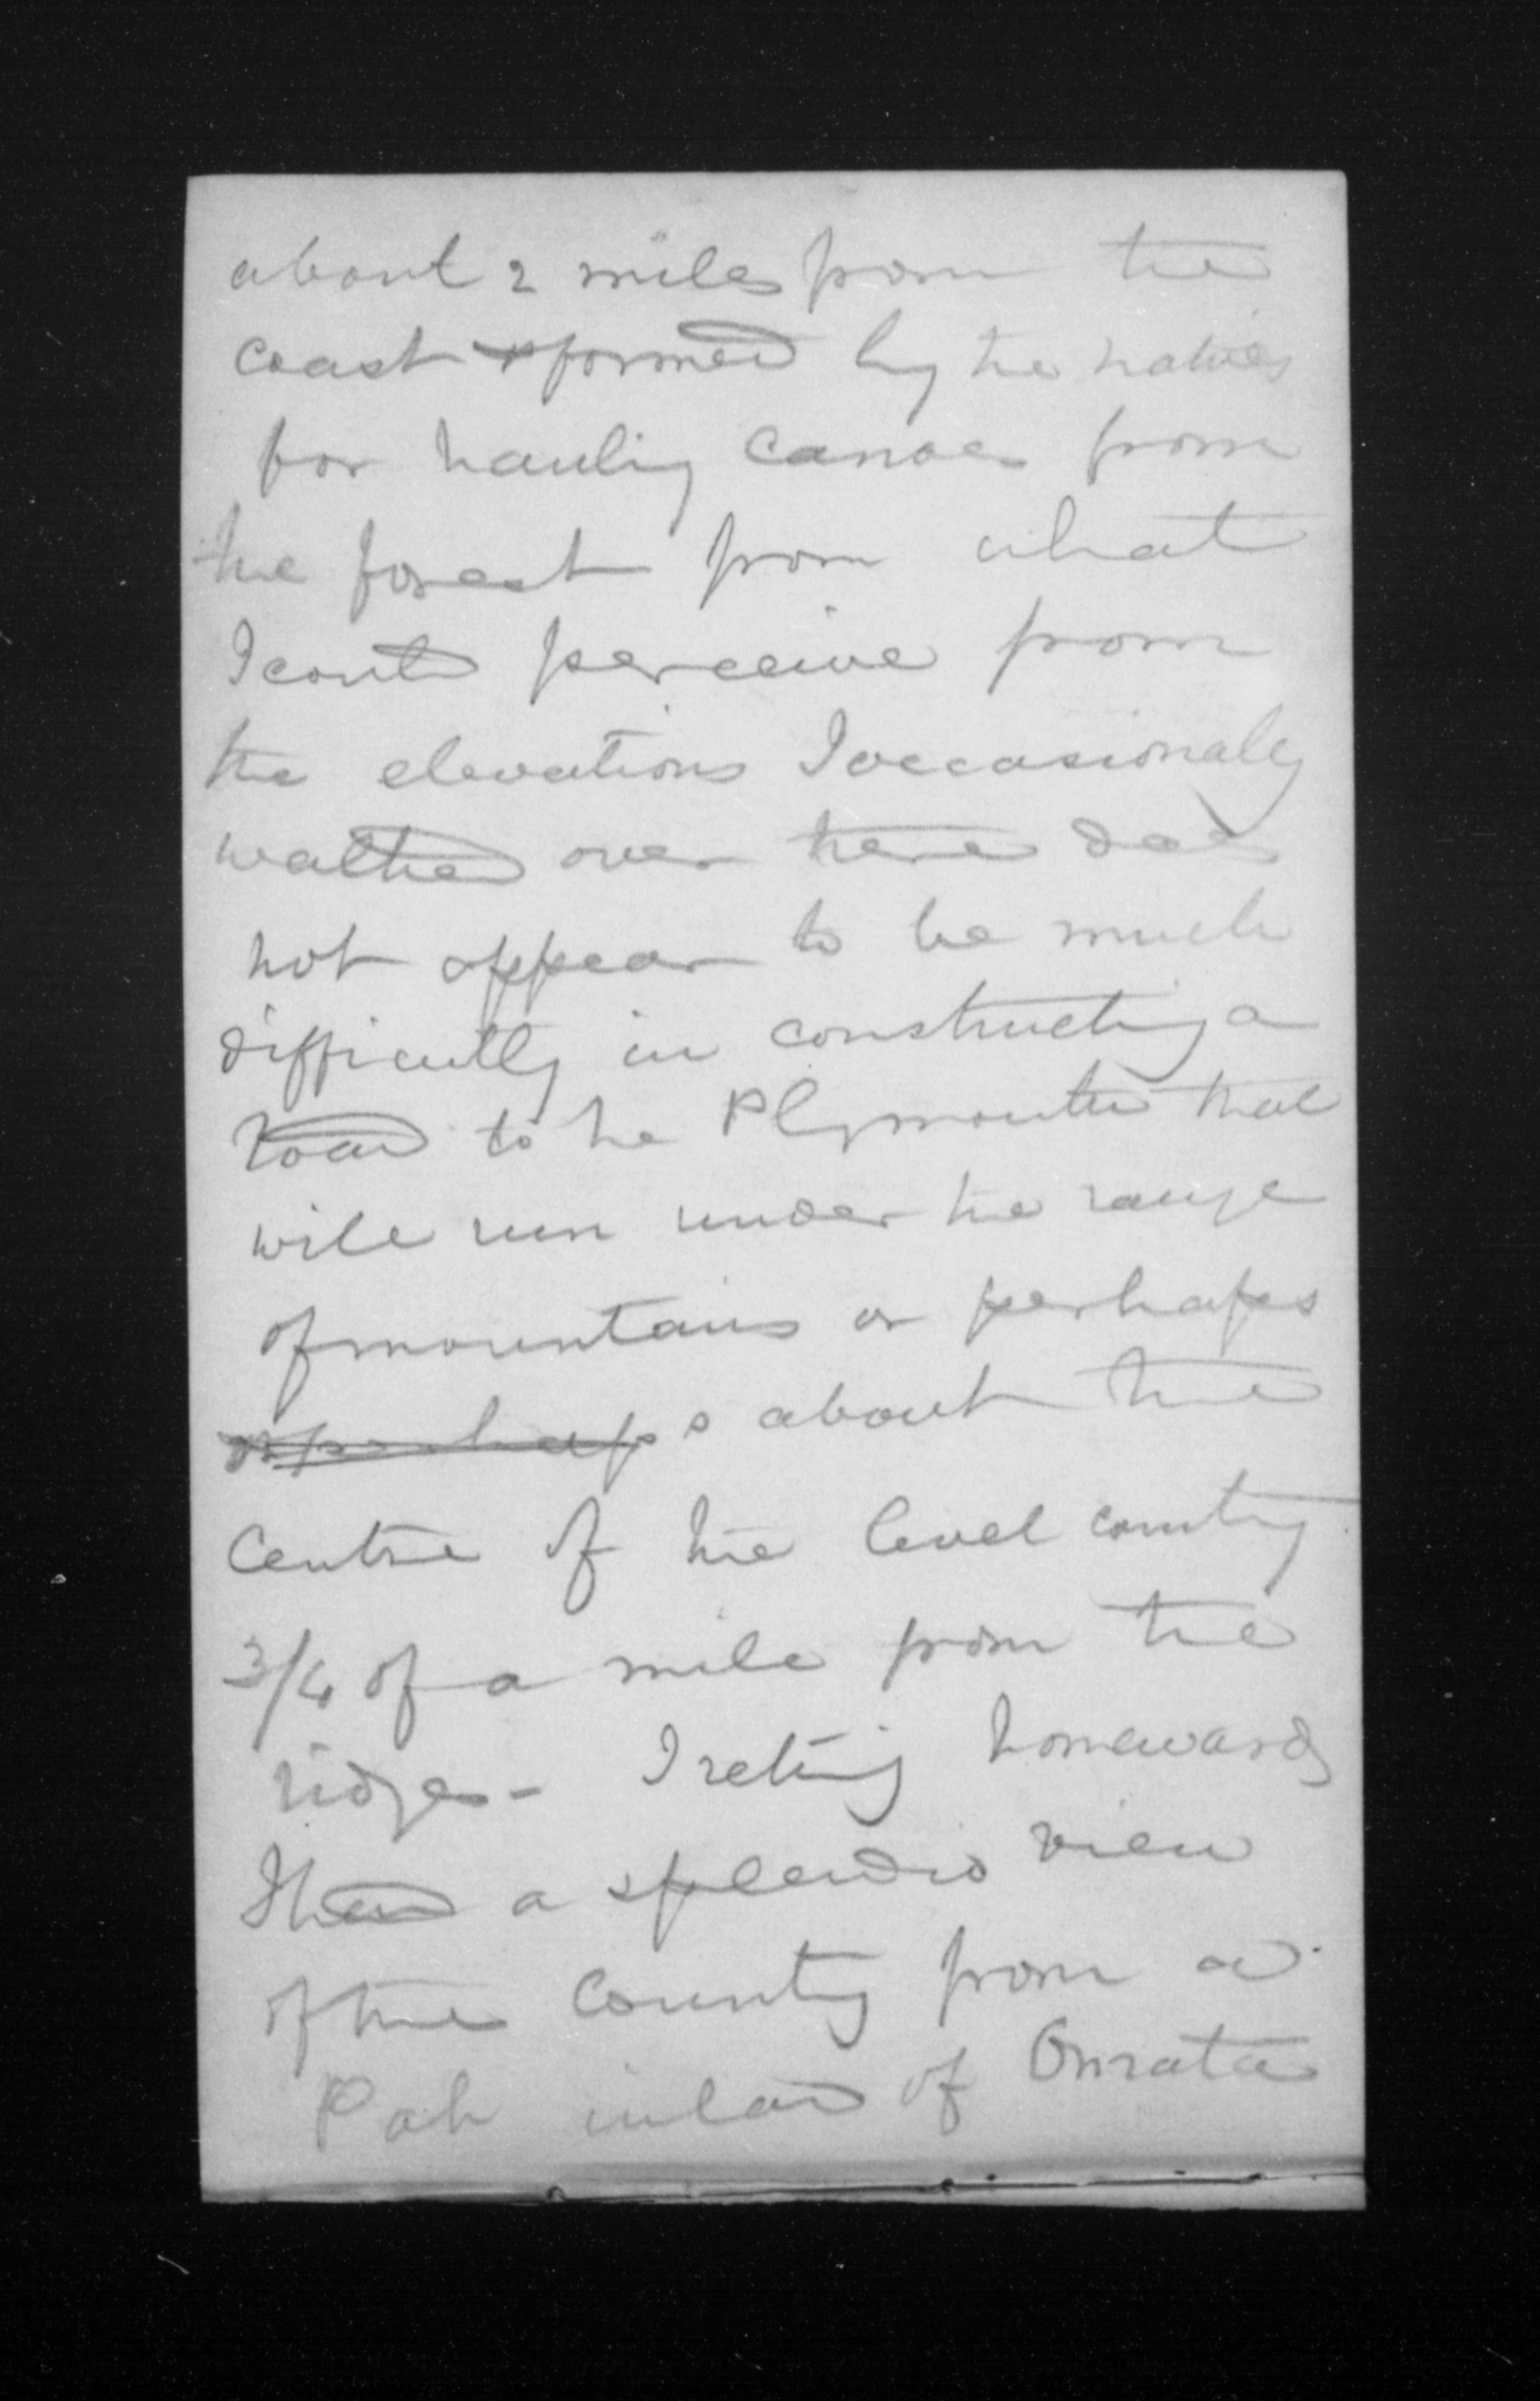 about 2 miles from the
coast & formed by the natives
for hauling canoes from
the forest from what
I could perceive from
the elevations I occasionally
walked over there does
not appear to be much
difficulty in constructing a
road to the Plymouth that
will run under the range
of mountains or perhaps
or perhaps about the
Centre of the level country
3/4 of a mile from the
ridges - I retiring homewards
I had a splendid view
of the Country from a
Pah inland of Omata